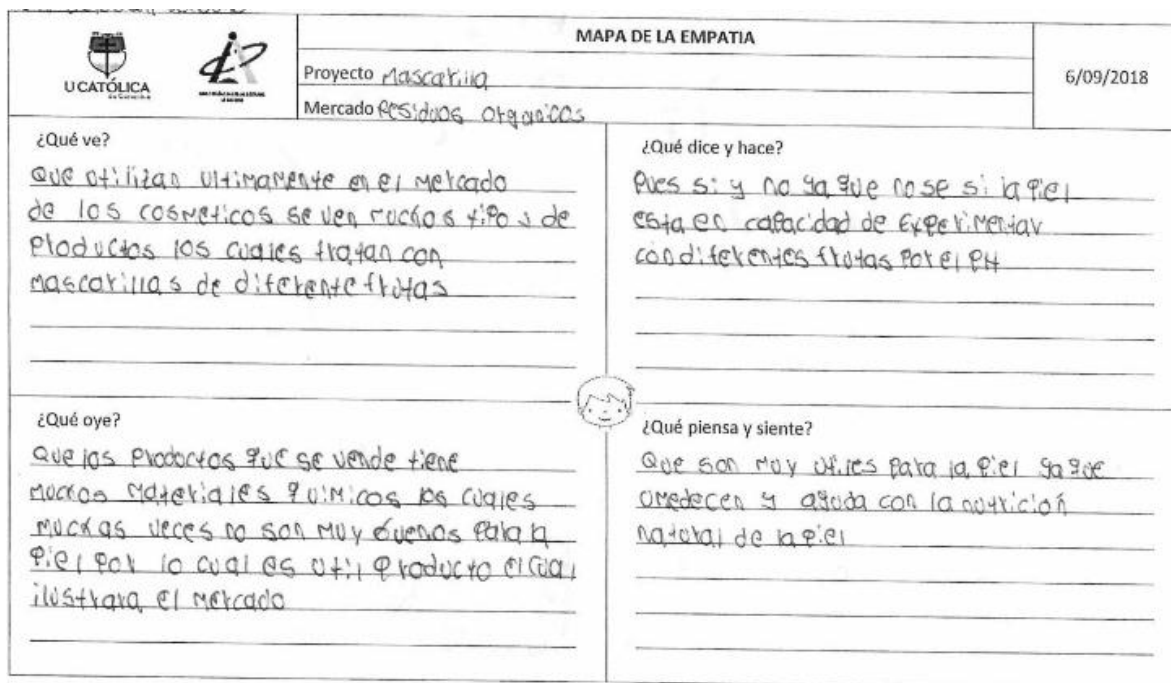 U CATÓLICA
de Colombia
MAPA DE LA EMPATIA
Proyecto Mascarilla
Mercado Residuos Organicos
6/09/2018
¿Qué ve?
Que utilizan ultimamente en el mercado
de los cosmeticos se ven muchos tipos de
productos los cuales tratan con
mascarillas de diferente frutas
¿Qué dice y hace?
Pues si y no ya que no se si la piel
esta en capacidad de experimentar
con diferentes frutas por el PH
¿Qué oye?
Que los productos que se vende tiene
muchos materiales quimicos los cuales
muchas veces no son muy buenos para la
piel por lo cual es util producto el cual
ilustrara el mercado
¿Qué piensa y siente?
Que son muy utiles para la piel ya que
umedecen y ayuda con la nutrición
natural de la piel